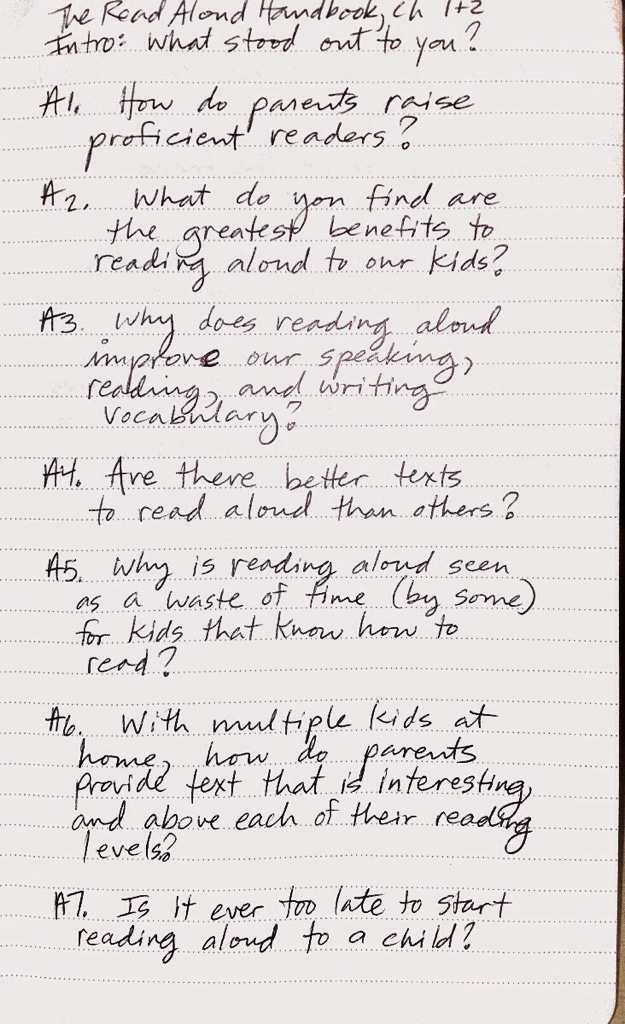 The Read Aloud Handbook, ch 1+2
Intro: What stood out to you?
A1. How do parents raise
proficient readers?
A2. What do you find are
the greatest benefits to
reading aloud to our kids?
A3. Why does reading aloud
improve our speaking,
reading, and writing
vocabulary?
A4. Are there better texts
to read aloud than others?
A5. Why is reading aloud seen
as a waste of time (by some)
for kids that know how to
read?
A6. With multiple kids at
home, how do parents
provide text that is interesting,
and above each of their reading
levels?
A7. Is it ever too late to start
reading aloud to a child?